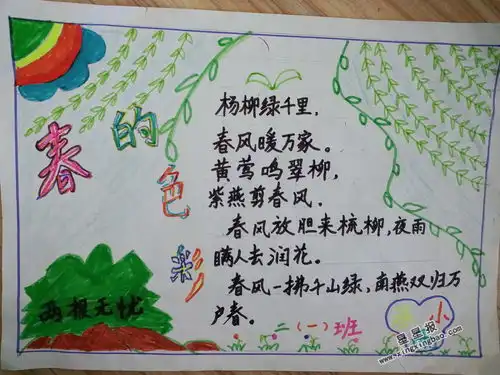 春的色彩
杨柳绿千里，
春风暖万家。
黄莺鸣翠柳，
紫燕剪春风．
春风放胆来梳柳，夜雨
瞒人去润花。
春风一拂千山绿，南燕双归万
户春。
两根无忧
二（一）班
小
星星报
www.szxingxingbao.com